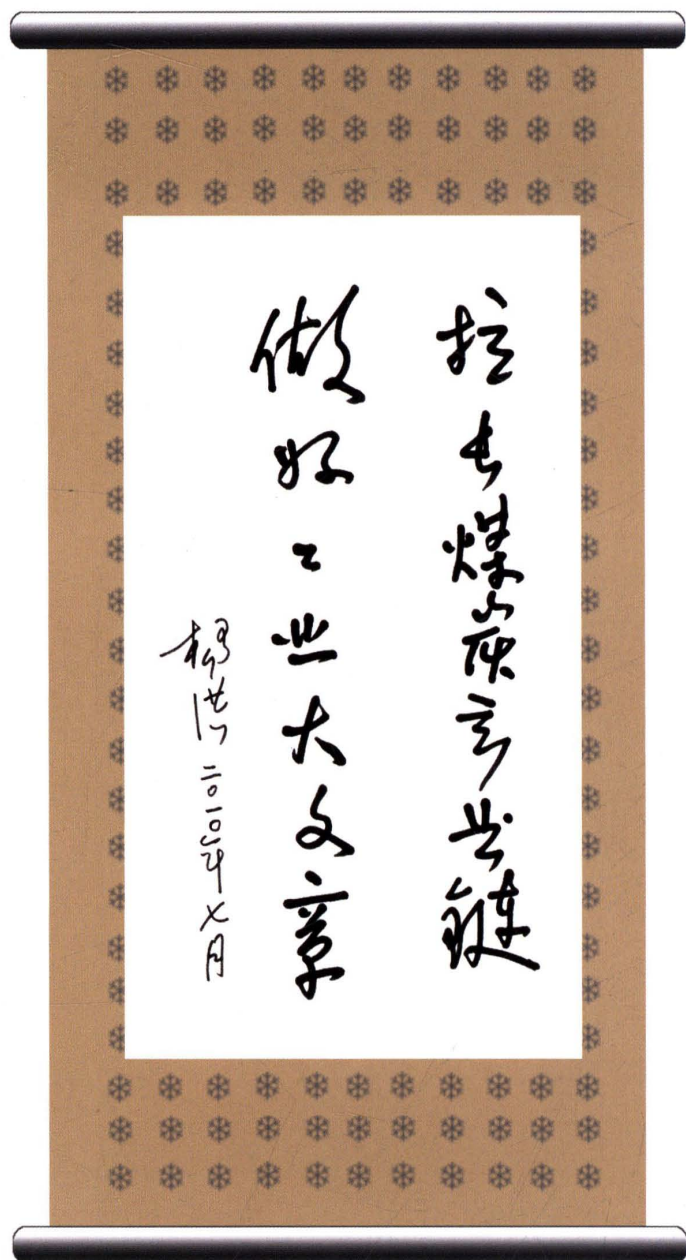 拉长煤炭产业链
做好工业大文章
杨洪 二〇一〇年七月